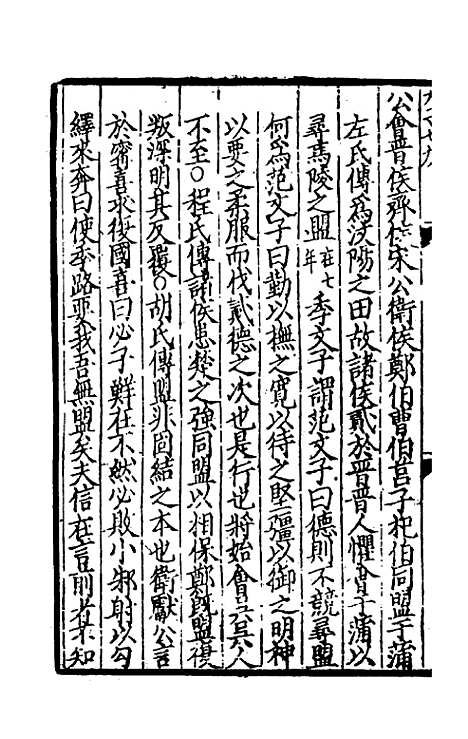 公會晉侯齊侯宋公衛侯鄭伯曹伯莒子杞伯同盟于蒲
左氏傳爲汶陽之田故諸侯貳於晉晉人懼會于蒲以
尋馬陵之盟在七年季文子謂范文子曰德則不競尋盟
何爲范文子曰勤以撫之寛以待之堅彊以御之明神
以要之柔服而伐貳德之次也是行也將始會吳吳人
不至○程氏傳諸侯患楚之強同盟以相保鄭既盟復
叛深明其反覆○胡氏傳盟非固結之本也衛獻公言
於甯喜求復國喜曰必子鮮在不然必敗小邾射以句
繹來奔曰使季路要我吾無盟矣夫信在言前者不知